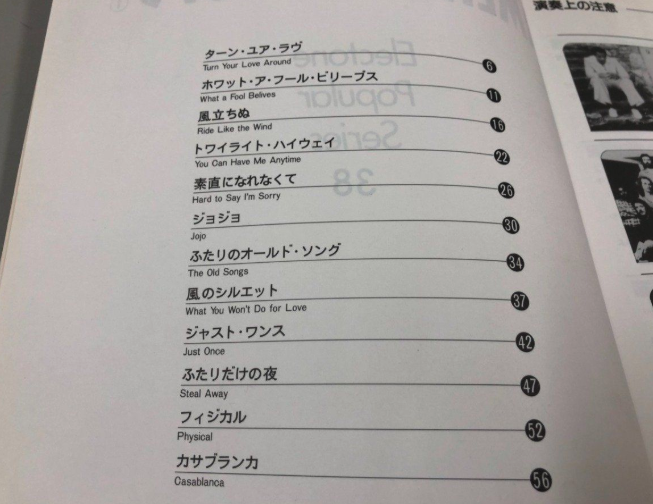 演奏上の注意
ターン・ユア・ラヴ
Turn Your Love Around
6
ホワット・ア・フール・ビリーブス
What a Fool Belives
11
風立ちぬ
Ride Like the Wind
16
トワイライト・ハイウェイ
You Can Have Me Anytime
22
素直になれなくて
Hard to Say I'm Sorry
26
ジョジョ
Jojo
30
ふたりのオールド・ソング
The Old Songs
34
風のシルエット
What You Won't Do for Love
37
ジャスト・ワンス
Just Once
42
ふたりだけの夜
Steal Away
47
フィジカル
Physical
52
カサブランカ
Casablanca
56
Electone
Popular
Series
38